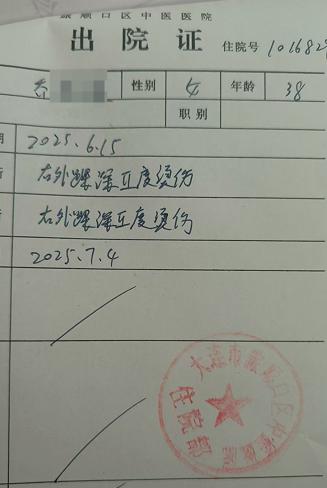 旅顺口区中医医院
出院证 住院号 1016829
性别 女 年龄 38
职别
期 2025.6.15
右外踝深Ⅱ度烫伤
右外踝深Ⅱ度烫伤
2025.7.4
大连市旅顺口区中医医院
住院部